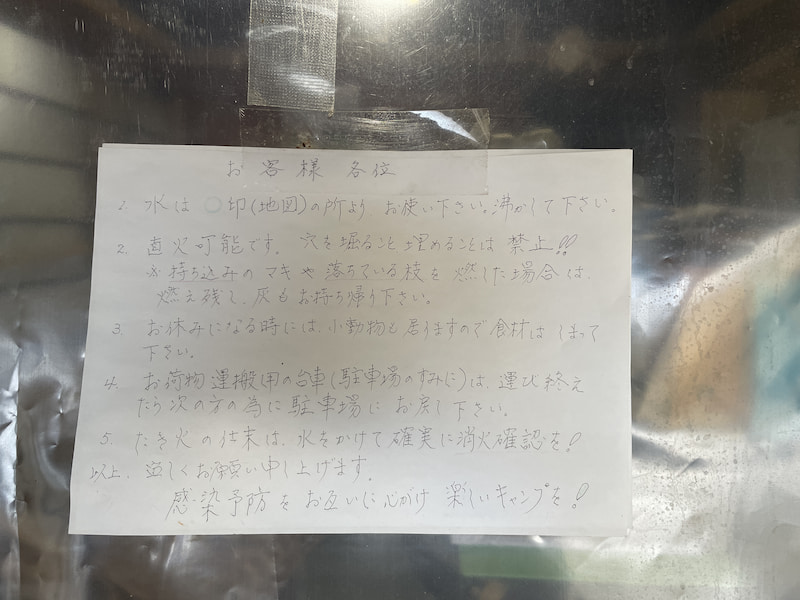 お客様 各位
1. 水は ○印(地図)の所より お使い下さい。沸かして下さい。
2. 直火可能です。穴を掘ること 埋めることは 禁止!!
※持ち込みの マキや 落ちている枝を 燃した場合は、
燃え残し、灰も お持ち帰り下さい。
3. お休みになる時には、小動物も 居りますので 食材は しまって
下さい。
4. お荷物 運搬用の台車(駐車場のすみに)は、運び終え
たら 次の方の為に 駐車場に お戻し下さい。
5. たき火の仕末は、水をかけて 確実に 消火確認を!
以上、宜しくお願い申し上げます。
感染予防を お互いに心がけ 楽しいキャンプを!